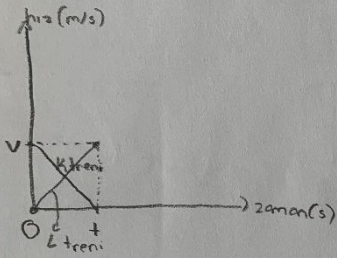 hız(m/s)
V
K treni
zaman(s)
O
t
L treni